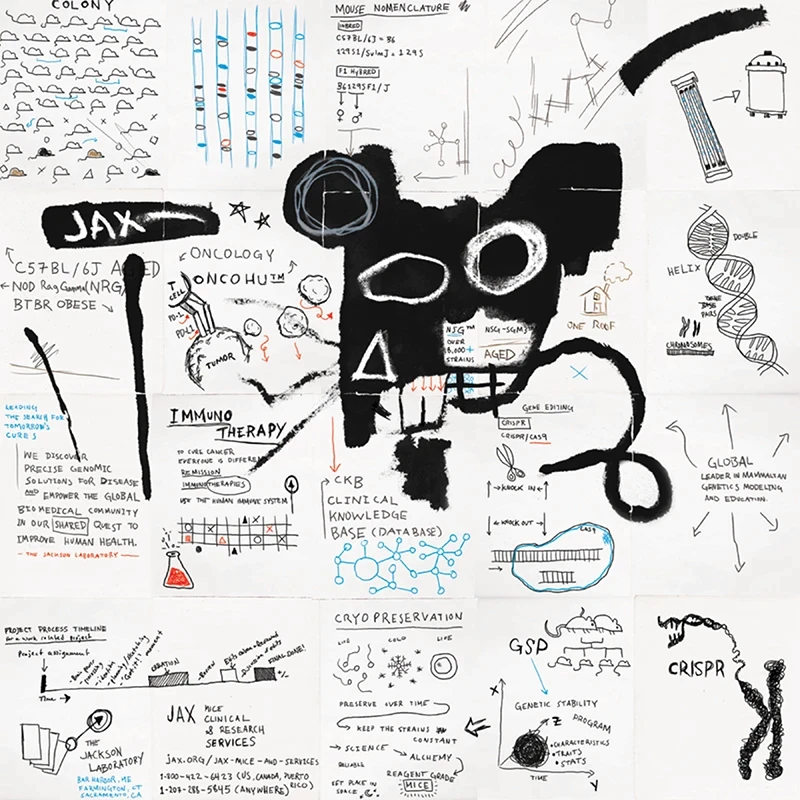 COLONY
MOUSE NOMENCLATURE
INBRED
C57BL/6J = B6
129S1/SvImJ = 129S
F1 HYBRED
B6129SF1/J
♀ ♂
JAX
C57BL/6J AGED
NOD Rag Gamma (NRG)
BTBR OBESE
ONCOLOGY
ONCOHU™
T CELL
PD-1
PD-L1
TUMOR
NSG™
OVER
8,000+
STRAINS
NSG-SGM3™
AGED
ONE ROOF
DOUBLE
HELIX
BASE
PAIRS
CHROMOSOMES
LEADING
THE SEARCH FOR
TOMORROW'S
CURES
WE DISCOVER
PRECISE GENOMIC
SOLUTIONS FOR DISEASE
AND EMPOWER THE GLOBAL
BIOMEDICAL COMMUNITY
IN OUR SHARED QUEST TO
IMPROVE HUMAN HEALTH.
- THE JACKSON LABORATORY
IMMUNO
THERAPY
TO CURE CANCER
EVERYONE IS DIFFERENT
REMISSION
IMMUNOTHERAPIES
USE THE HUMAN IMMUNE SYSTEM
CKB
CLINICAL
KNOWLEDGE
BASE (DATABASE)
GENE EDITING
CRISPR
CRISPR/CAS9
KNOCK IN
KNOCK OUT
CAS9
GLOBAL
LEADER IN MAMMALIAN
GENETICS MODELING
AND EDUCATION.
PROJECT PROCESS TIMELINE
for a work related project
Project assignment
CREATION
Review
FINAL DONE!
Time
THE
JACKSON
LABORATORY
BAR HARBOR, ME
FARMINGTON, CT
SACRAMENTO, CA
JAX MICE
CLINICAL
& RESEARCH
SERVICES
jax.org/JAX-MICE-AND-SERVICES
1-800-422-6423 (US, CANADA, PUERTO RICO)
1-207-288-5845 (ANYWHERE)
CRYOPRESERVATION
LIVE COLD LIFE
PRESERVE OVER TIME
KEEP THE STRAINS
CONSTANT
SCIENCE
ALCHEMY
RELIABLE
REAGENT GRADE
MICE
SET PLACE IN
SPACE
GSP
X
GENETIC STABILITY
PROGRAM
Z
• CHARACTERISTICS
• TRAITS
• STATS
TIME
Y
CRISPR